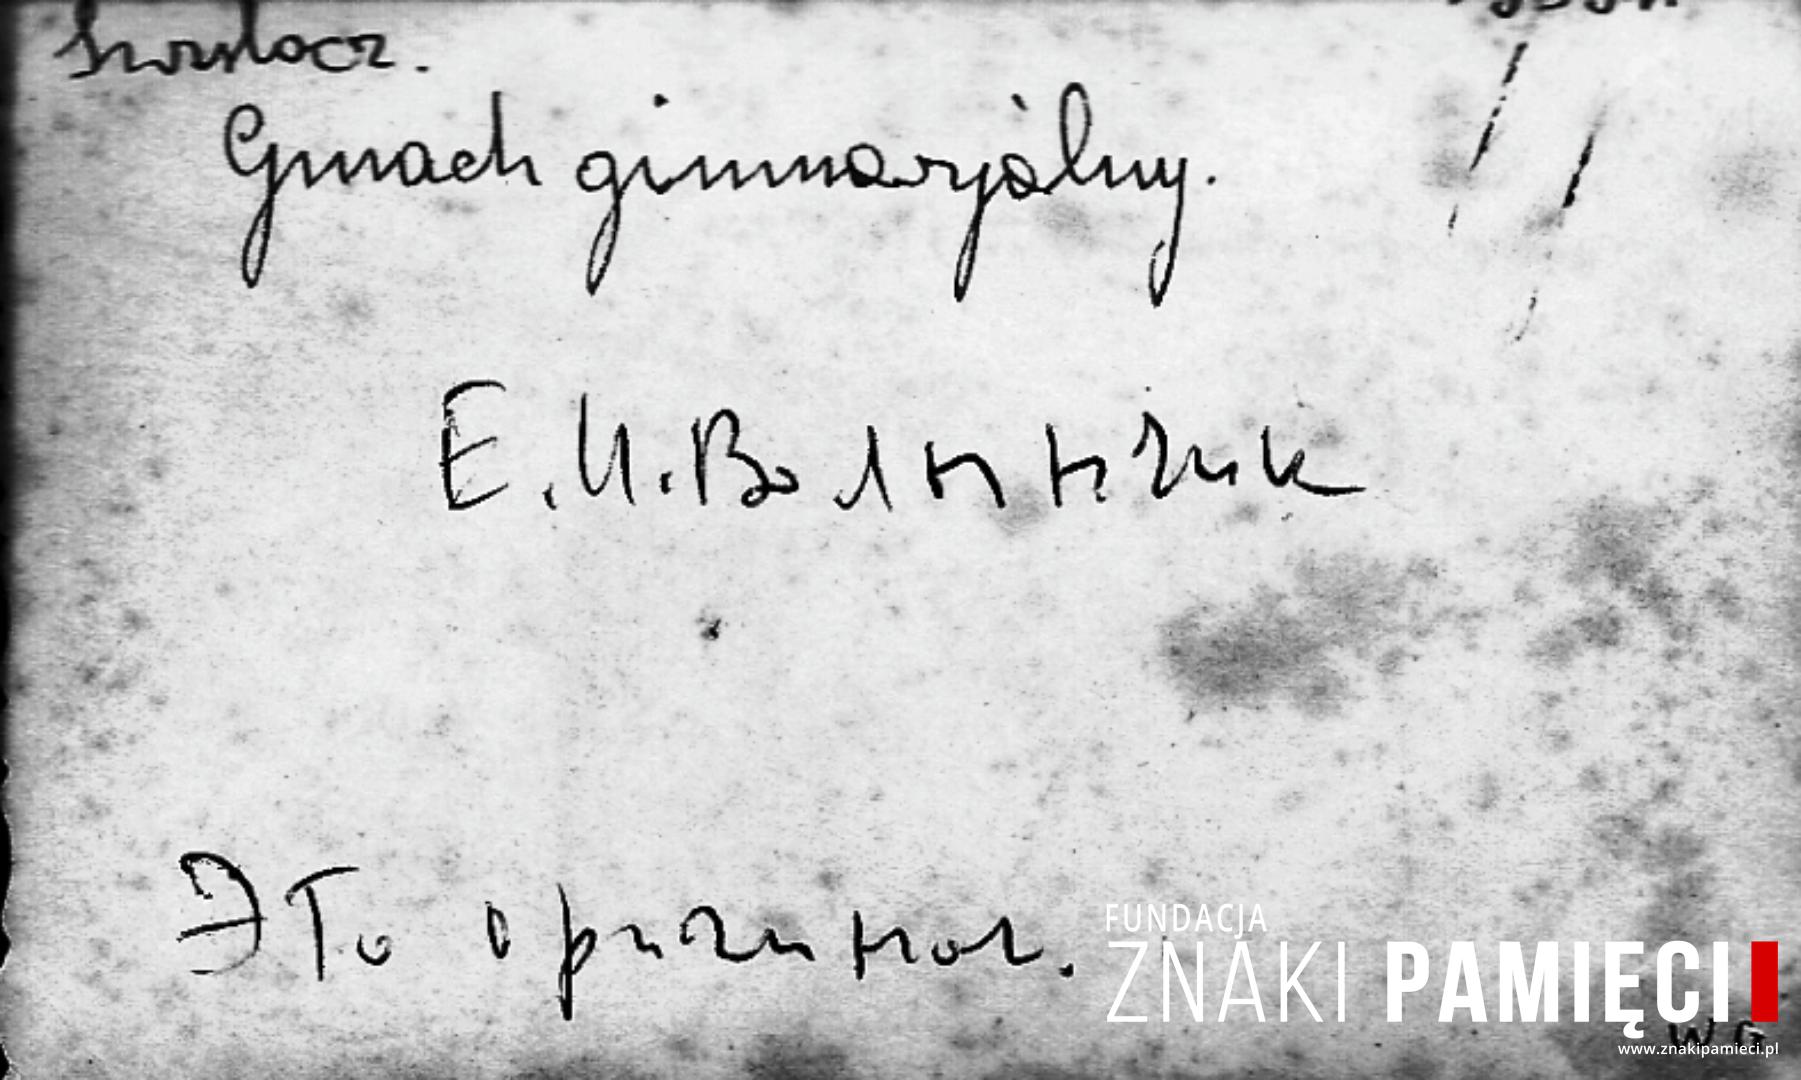 Swisłocz.
Gmach gimnazjalny.
Е.И.Волынчик
Это оригинал.
FUNDACJA
ZNAKI PAMIĘCI
W G
www.znakipamieci.pl